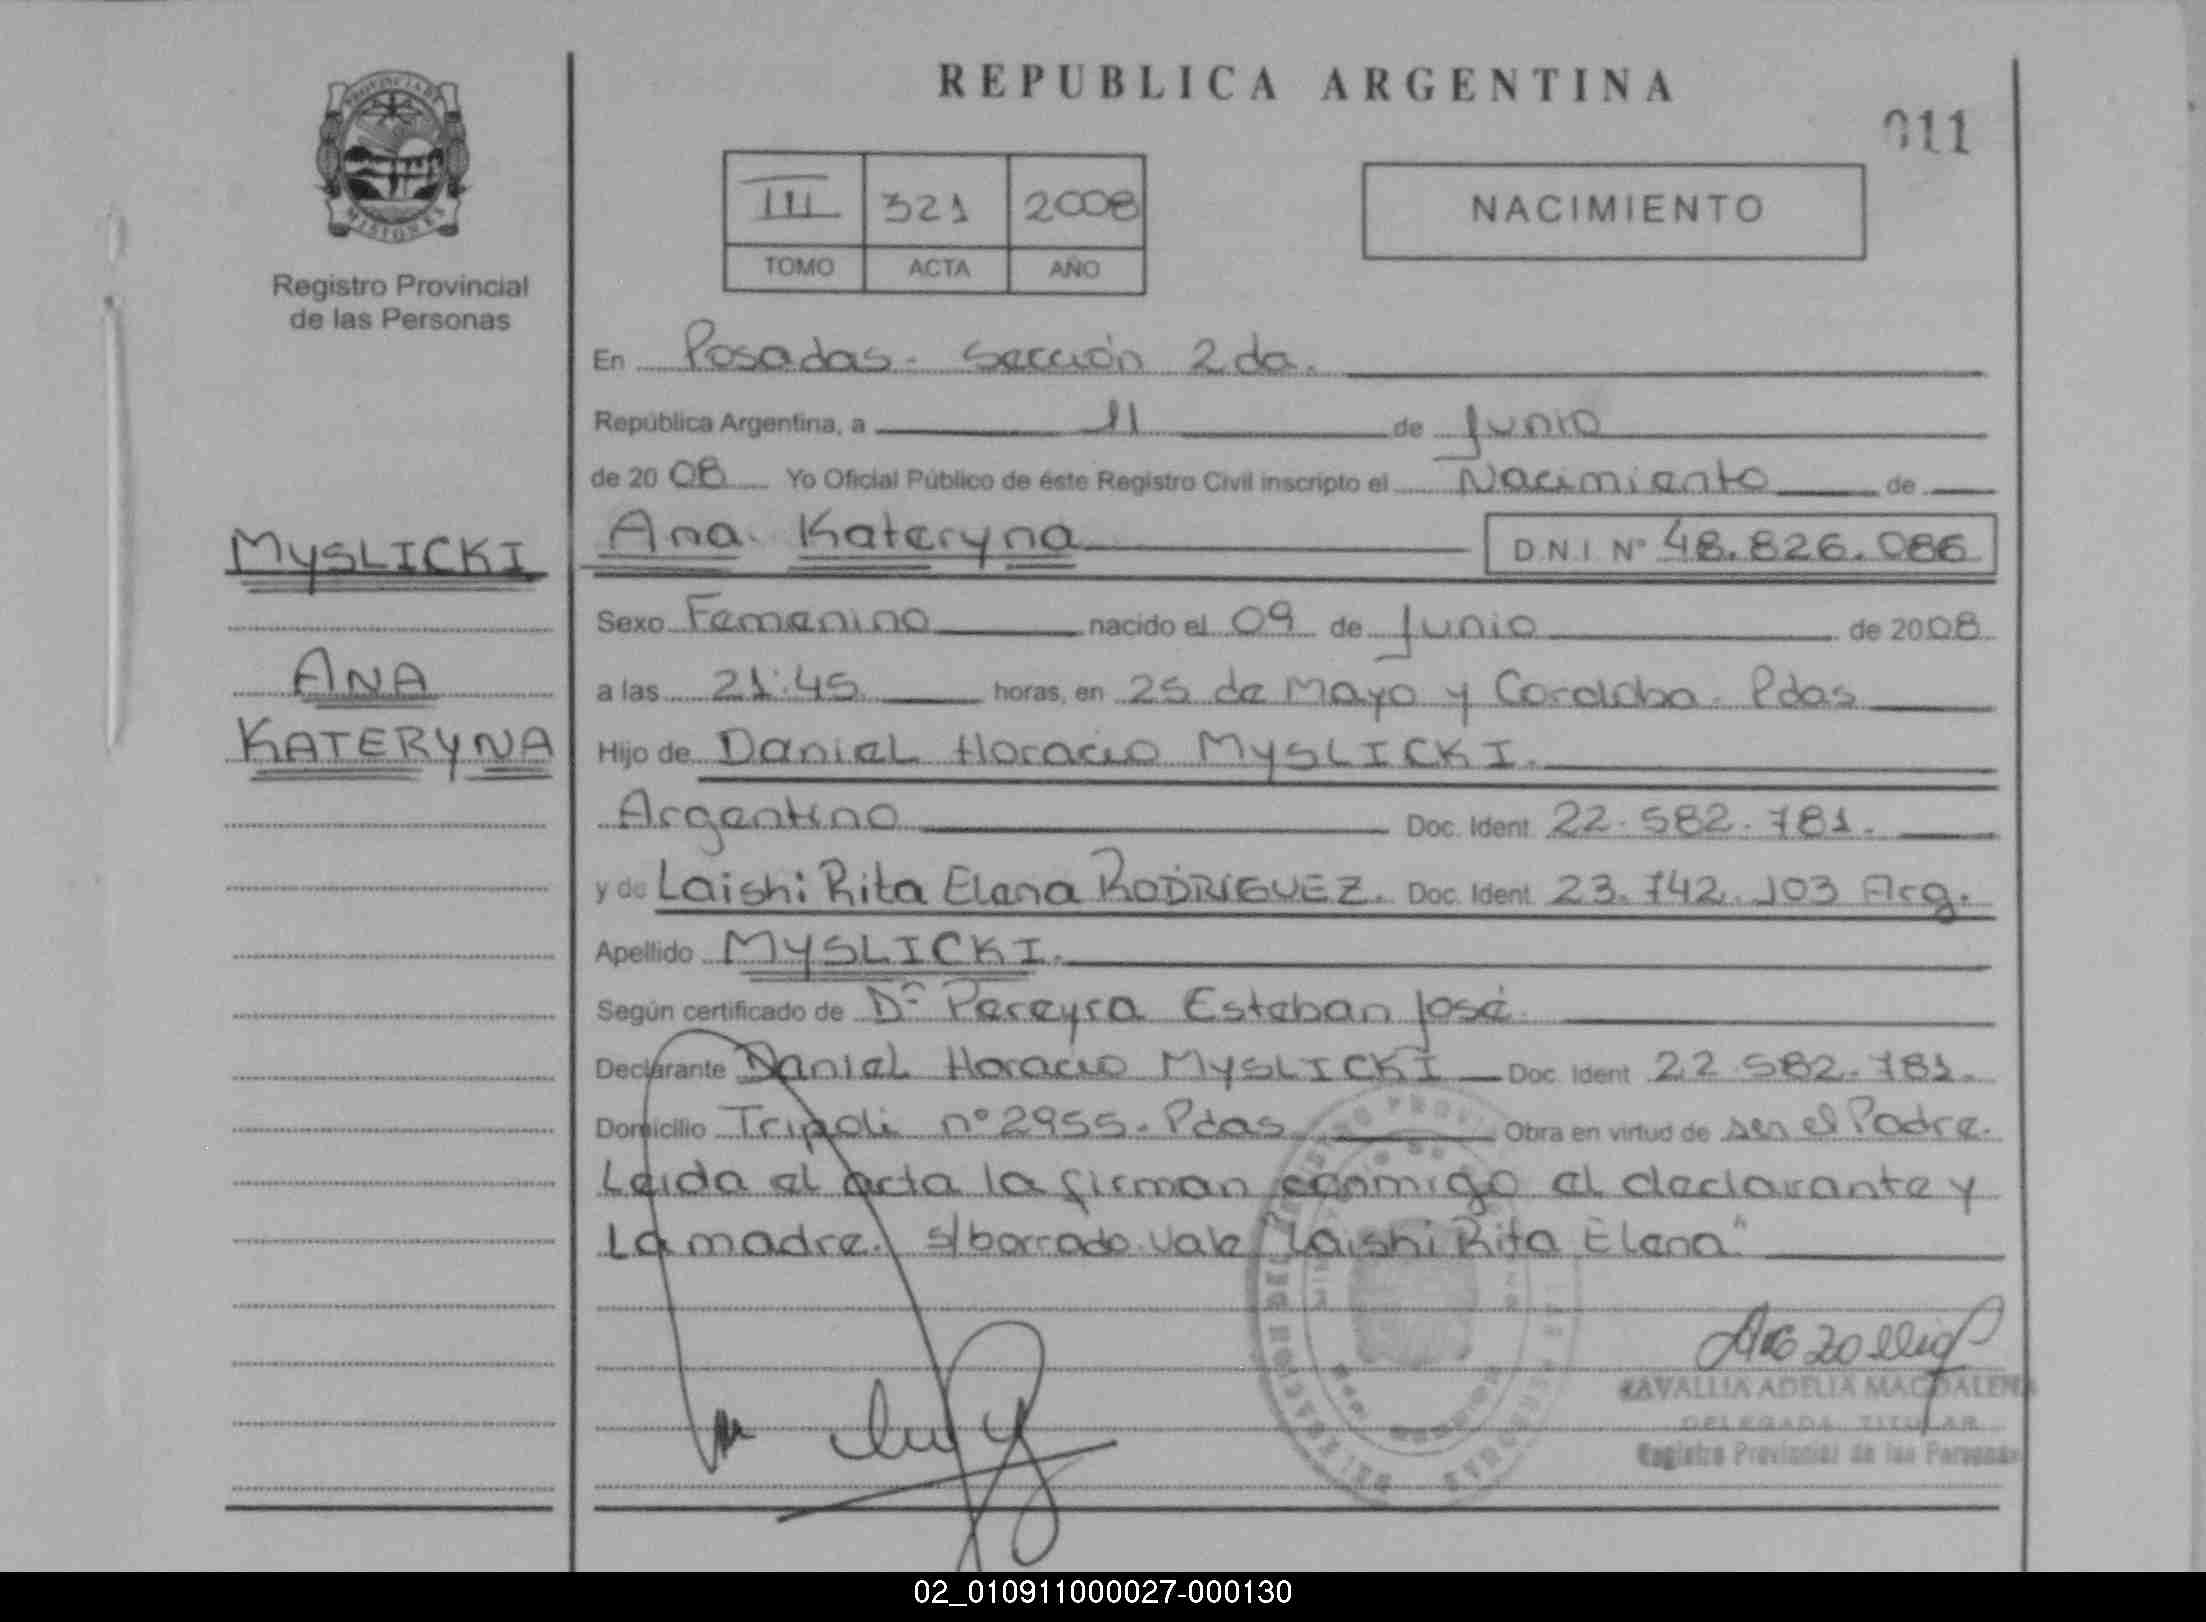 REPUBLICA ARGENTINA
011
PROVINCIA DE
MISIONES
Registro Provincial
de las Personas
III 321 2008
TOMO ACTA AÑO
NACIMIENTO
En Posadas - Sección 2da.
República Argentina, a 11 de Junio
de 2008 Yo Oficial Público de éste Registro Civil inscripto el Nacimiento de
MYSLICKI
ANA
KATERYNA
Ana Kateryna D.N.I Nº 48.826.086
Sexo Femenino nacido el 09 de Junio de 2008
a las 21:45 horas, en 25 de Mayo y Cordoba. Pdas
Hijo de Daniel Horacio MYSLICKI.
Argentino Doc. Ident 22.582.781.
y de Laishi Rita Elena RODRIGUEZ. Doc. Ident 23.742.103 Arg.
Apellido MYSLICKI.
Según certificado de Dr Pereyra Esteban José
Declarante Daniel Horacio MYSLICKI Doc. Ident 22.582.781.
Domicilio Tripoli nº 2955. Pdas Obra en virtud de ser el Padre.
Leida el acta la firman conmigo el declarante y
La madre. s/borrado. Vale "Laishi Rita Elena"
ADELIA MAGDALENA
DELEGADA TITULAR
Registro Provincial de las Personas
02_010911000027-000130